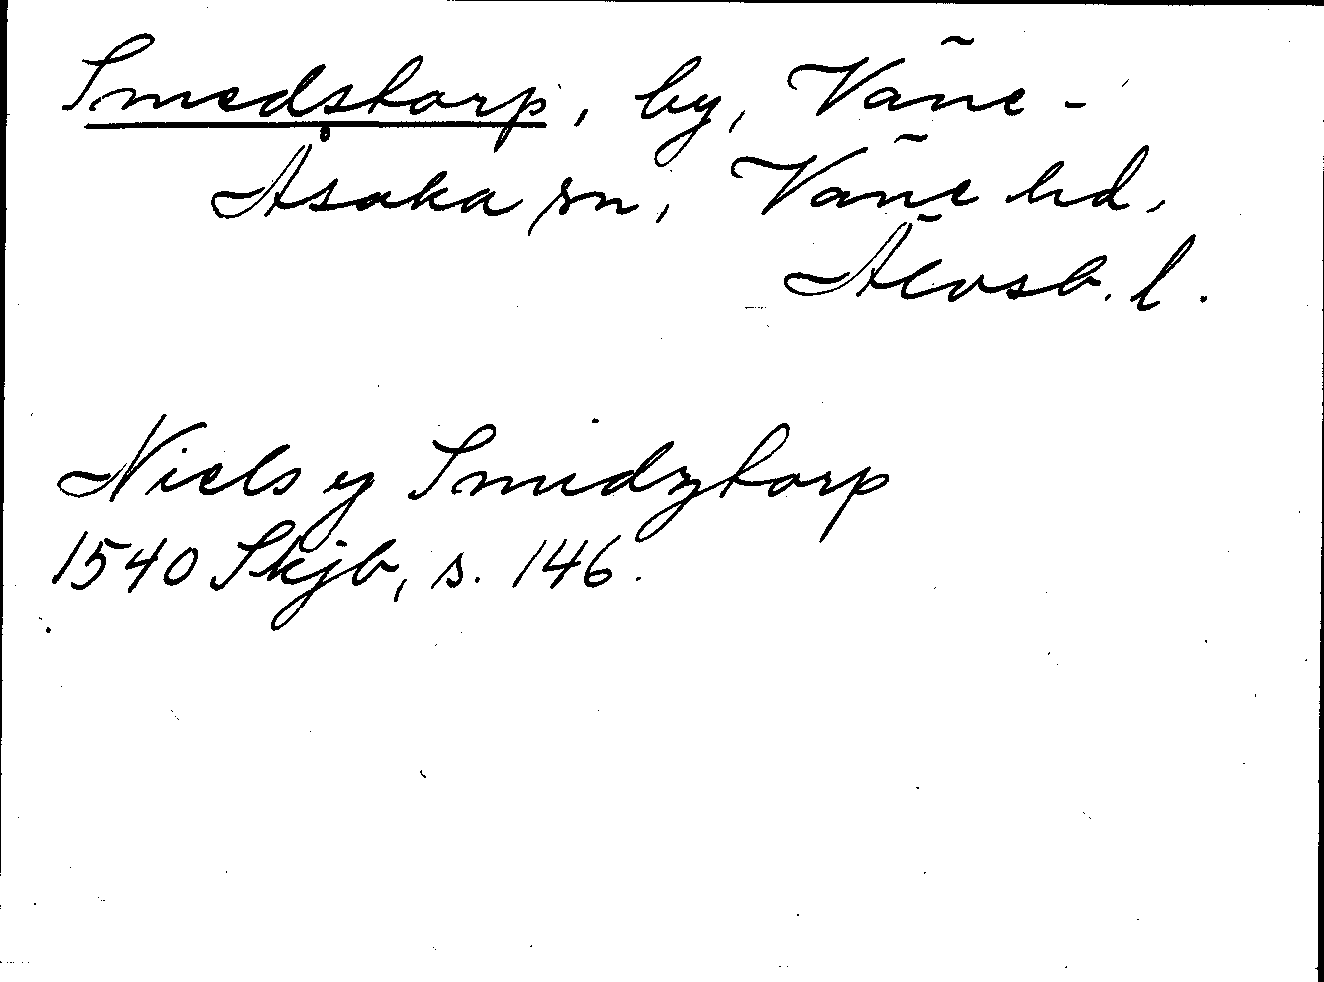 Smedstorp, by, Väne-
Åsaka sn, Väne hd,
Älvsb. l.
Niels y Smidztorp
1540 Skjb, s. 146.